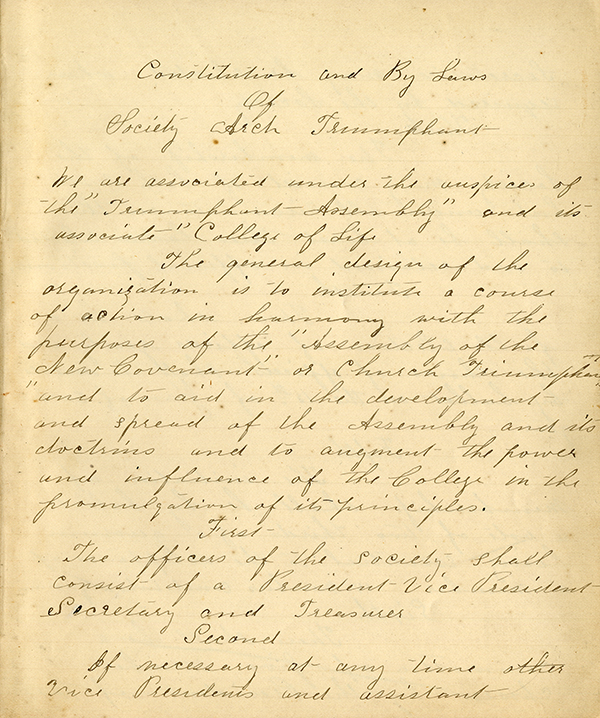 Constitution and By Laws
Of
Society Arch Triumphant
We are associated under the auspices of
the "Triumphant Assembly" and its
associate "College of Life
The general design of the
organization is to institute a course
of action in harmony with the
purposes of the "Assembly of the
New Covenant" or Church Triumphant
"and to aid in the development
and spread of the Assembly and its
doctrins and to augment the power
and influence of the College in the
promulgation of its principles.
First
The officers of the society shall
consist of a President Vice President
Secretary and Treasurer
Second
If necessary at any time other
Vice Presidents and assistant